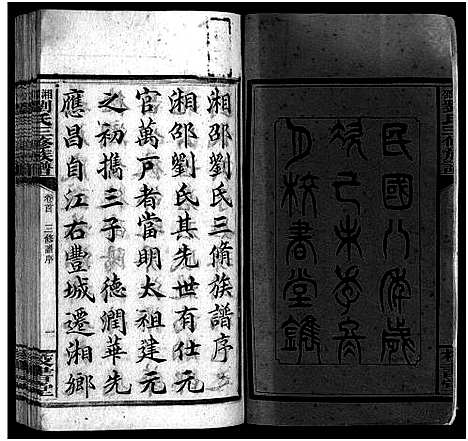 民國八年歲
次己未孟冬
月校書堂鐫
湘邵劉氏三脩族譜序
湘邵劉氏其先世有仕元
官萬戸者當明太祖建元
之初攜三子德潤華先
應昌自江右豐城遷湘鄉
劉氏三修族譜
卷首
三修譜序
一
校書堂